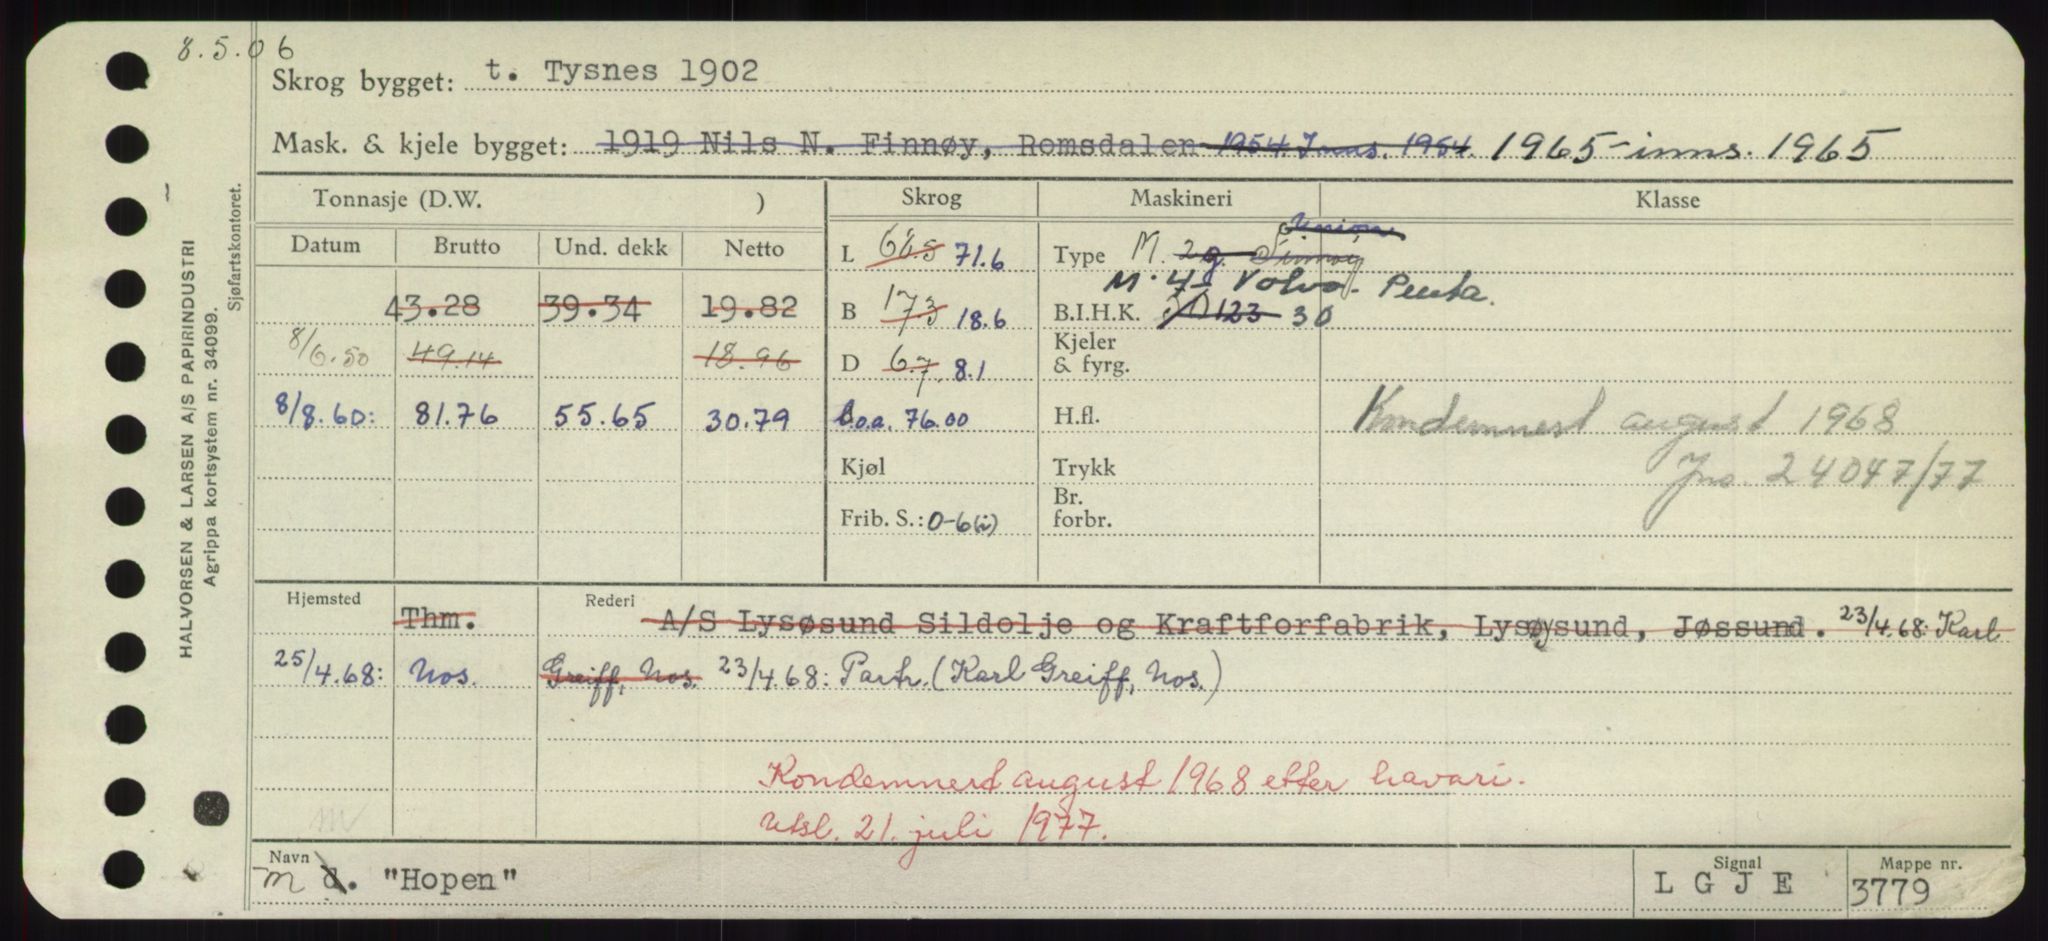 8.5.06
Skrog bygget: t. Tysnes 1902
Mask. & kjele bygget: 1919 Nils N. Finnøy, Romsdalen 1954. Inns. 1954. 1965 - inns. 1965
Tonnasje (D.W. ) Skrog Maskineri Klasse
Datum Brutto Und. dekk Netto
L 66.5 71.6
Type M. 2 g. Finnøy Union
M. 4 s Volvo-Penta.
43.28 39.34 19.82
B 17.3 18.6
B.I.H.K. 123 30
8/6.50 49.14 18.96
D 6.7 8.1
Kjeler
& fyrg.
8/8.60: 81.76 55.65 30.79
L.o.a. 76.00
H.fl.
Kondemnert august 1968
Jno. 24047/77
Kjøl
Trykk
Frib. S.: 0-6(i)
Br.
forbr.
Hjemsted Thm. Rederi A/S Lysøsund Sildolje og Kraftforfabrik, Lysøysund, Jøssund. 23/4.68: Karl
25/4.68: Nos. Greiff, Nos. 23/4.68: Partr. (Karl Greiff, Nos.)
Kondemnert august 1968 etter havari.
Utsl. 21. juli 1977.
m
Navn m d. "Hopen"
Signal LGJE
Mappe nr. 3779
HALVORSEN & LARSEN A/S PAPIRINDUSTRI
Agrippa kortsystem nr. 34099.
Sjøfartskontoret.